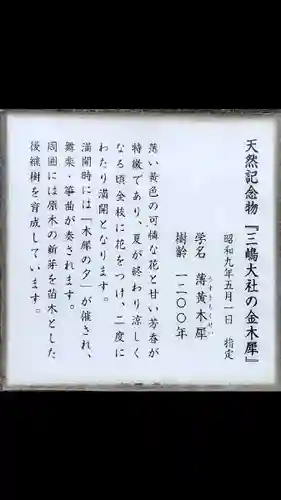 天然記念物『三嶋大社の金木犀』
昭和九年五月一日 指定
学名 薄黄木犀
うすきもくせい
樹齢 一二〇〇年
薄い黄色の可憐な花と甘い芳香が
特徴であり、夏が終わり涼しく
なる頃全枝に花をつけ、二度に
わたり満開となります。
満開時には「木犀の夕」が催され、
舞楽・箏曲が奏されます。
周囲には原木の新芽を苗木とした
後継樹を育成しています。